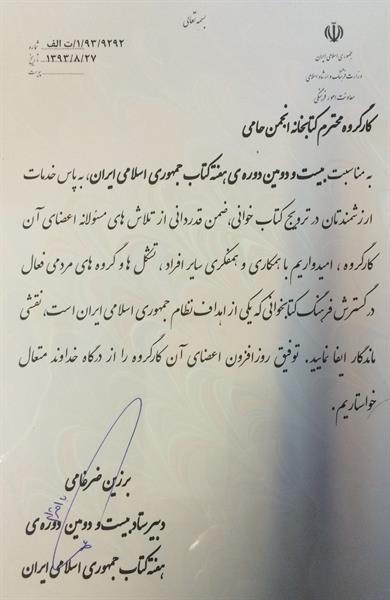 بسمه تعالی
جمهوری اسلامی ایران
وزارت فرهنگ و ارشاد اسلامی
معاونت امور فرهنگی
شماره ۱/۹۳/۹۲۹۲/ت الف
تاریخ ۱۳۹۳/۸/۲۷
پیوست
کارگروه محترم کتابخانه انجمن حامی
به مناسبت بیست و دومین دوره ی هفته کتاب جمهوری اسلامی ایران، به پاس خدمات
ارزشمندتان در ترویج کتاب خوانی، ضمن قدردانی از تلاش های مسئولانه اعضای آن
کارگروه ، امیدواریم با همکاری و همفکری سایر افراد ، تشکل ها و گروه های مردمی فعال
در گسترش فرهنگ کتابخوانی که یکی از اهداف نظام جمهوری اسلامی ایران است، نقشی
ماندگار ایفا نمایید. توفیق روزافزون اعضای آن کارگروه را از درگاه خداوند متعال
خواستاریم.
برزین ضرغامی
دبیر ستاد بیست و دومین دوره ی
هفته کتاب جمهوری اسلامی ایران